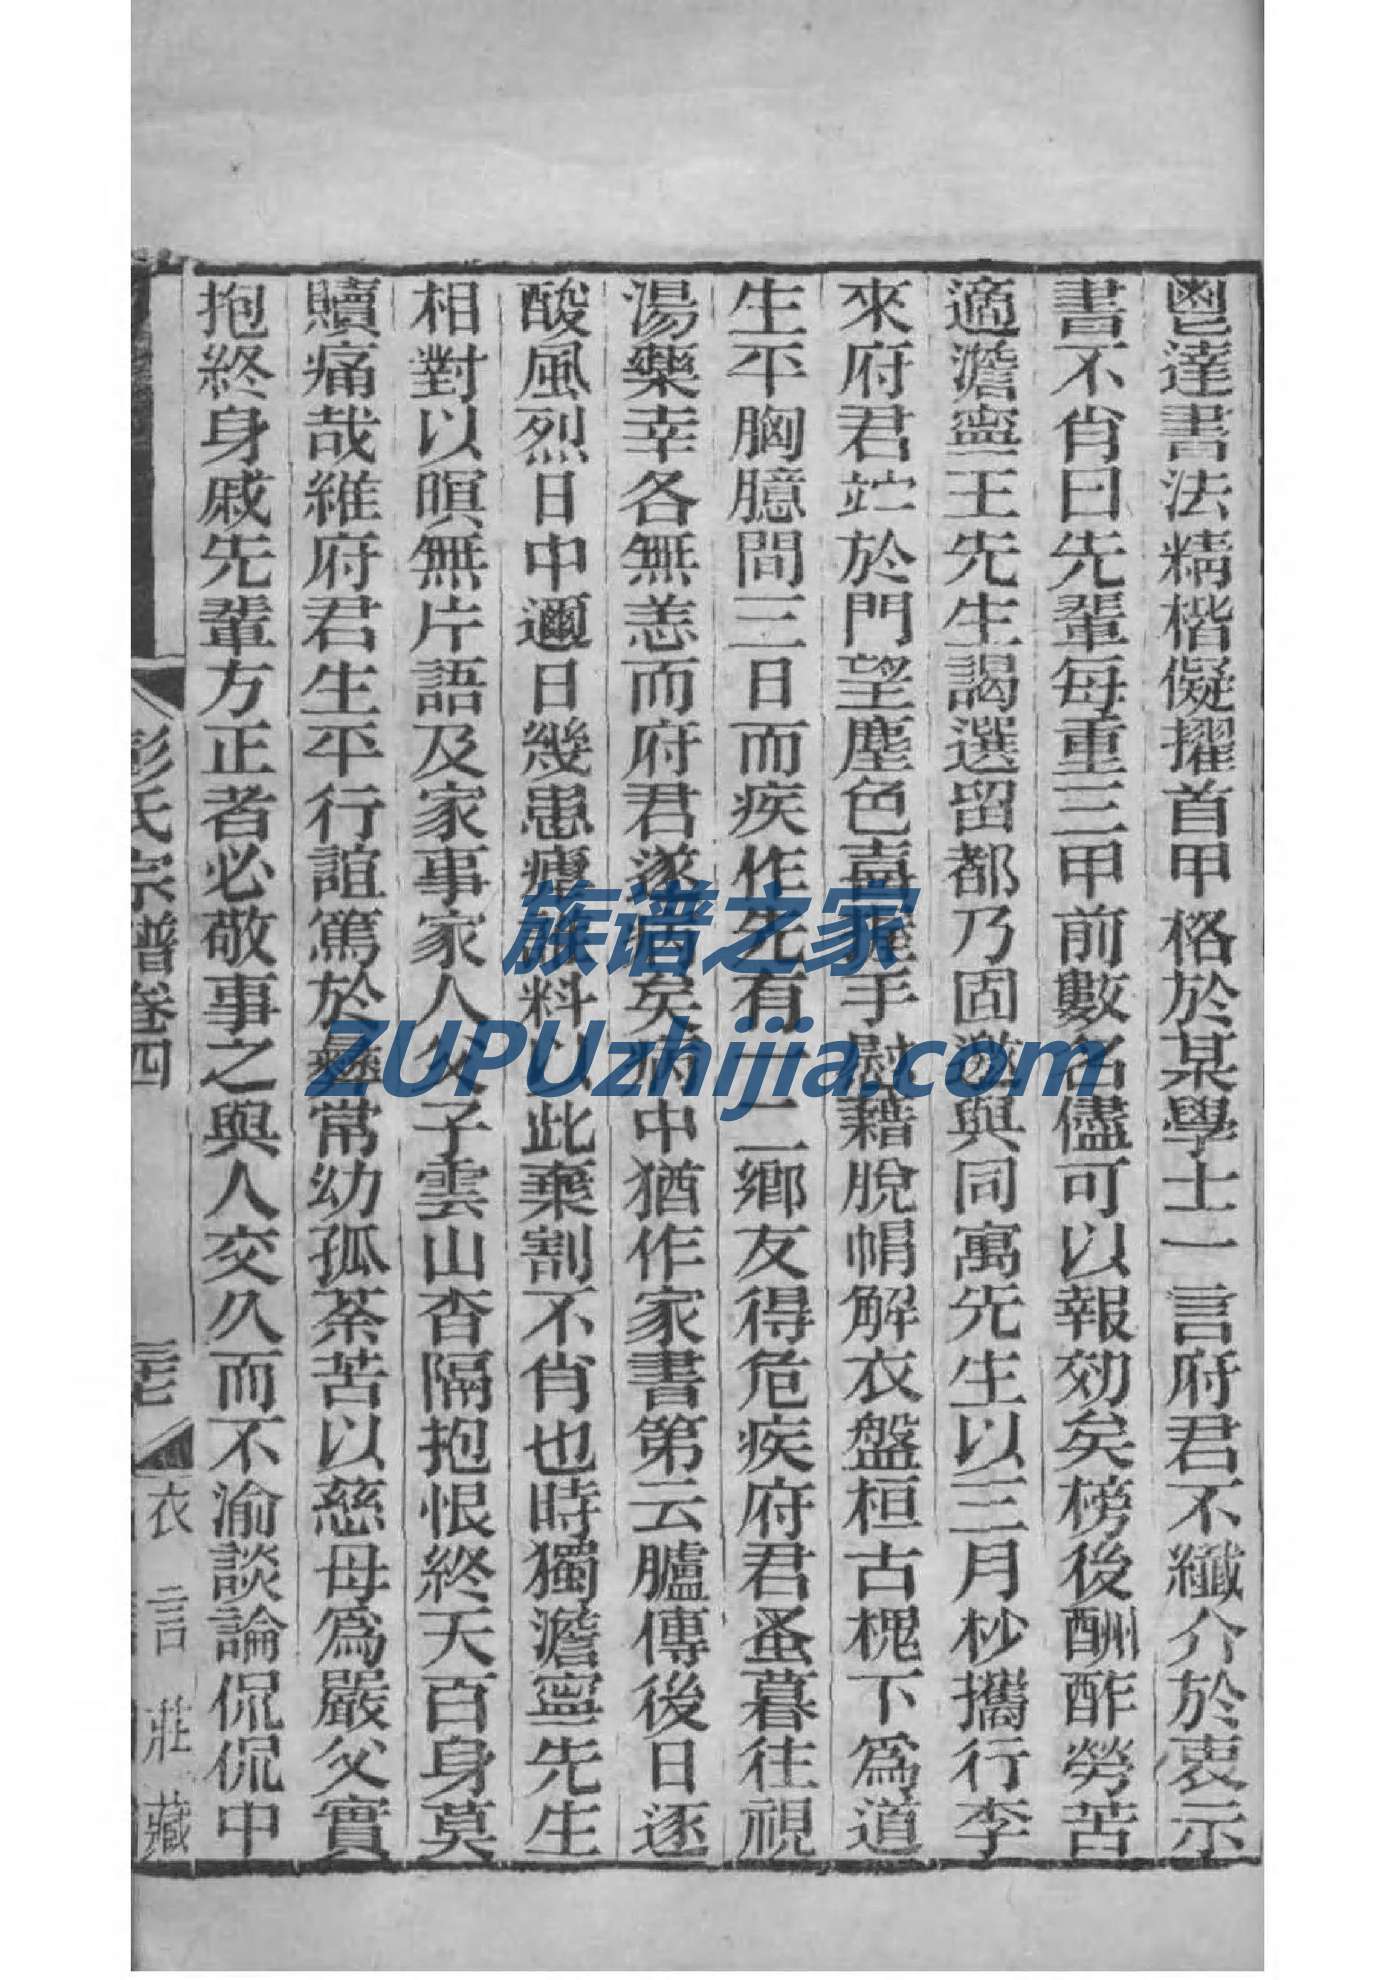 鬯達書法精楷儗擢首甲格於某學士一言府君不纖介於衷示
書不肖曰先輩每重三甲前數名儘可以報効矣榜後酬酢勞苦
適澹寧王先生謁選留都乃固邀與同寓先生以三月杪攜行李
來府君竚於門望塵色喜握手慰藉脫帽解衣盤桓古槐下爲道
生平胸臆間三日而疾作先有一二鄉友得危疾府君蚤暮往視
湯藥幸各無恙而府君遂病矣病中猶作家書第云臚傳後日逐
酸風烈日中邇日幾患瘧誰料以此棄割不肖也時獨澹寧先生
相對以暝無片語及家事家人父子雲山杳隔抱恨終天百身莫
贖痛哉維府君生平行誼篤於彝常幼孤荼苦以慈母爲嚴父實
抱終身戚先輩方正者必敬事之與人交久而不渝談論侃侃中
彭氏宗譜卷四
衣言莊藏
族谱之家
ZUPUzhijia.com